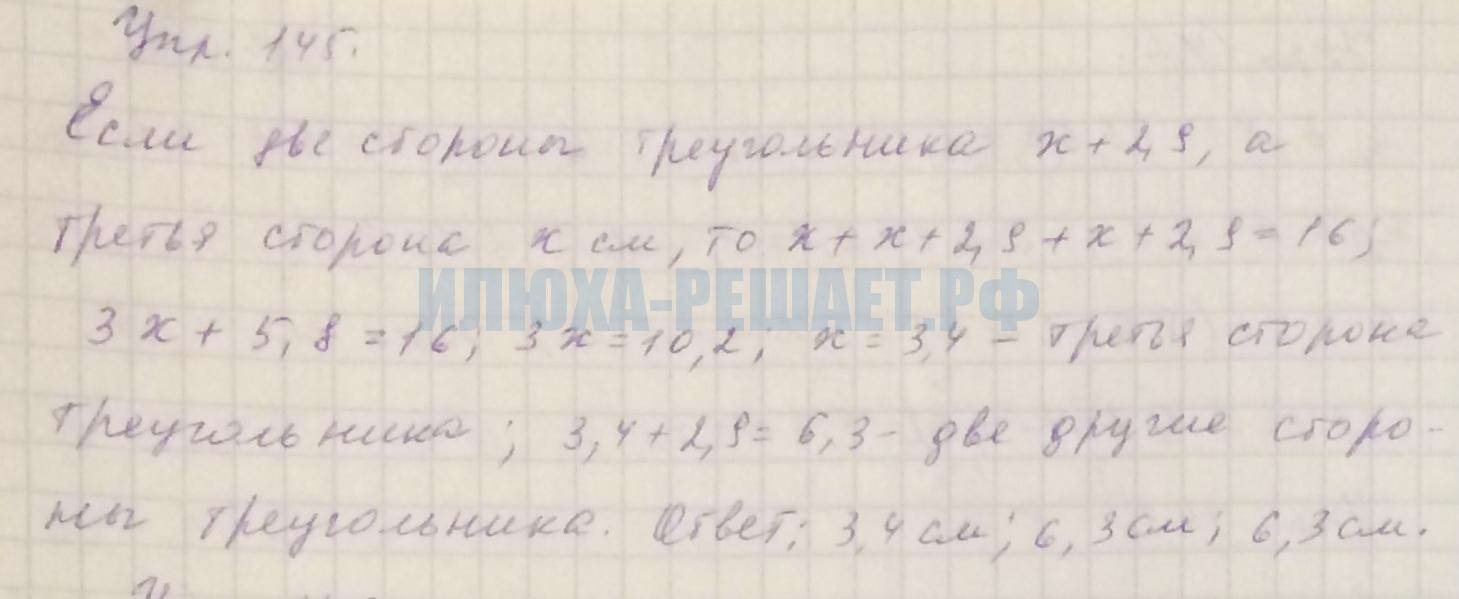 Упр. 145.
Если две стороны треугольника x + 2,9, а
третья сторона x см, то x + x + 2,9 + x + 2,9 = 16;
ИЛЮХА-РЕШАЕТ.РФ
3x + 5,8 = 16; 3x = 10,2; x = 3,4 - третья сторона
треугольника; 3,4 + 2,9 = 6,3 - две другие сторо-
ны треугольника. Ответ: 3,4 см; 6,3 см; 6,3 см.